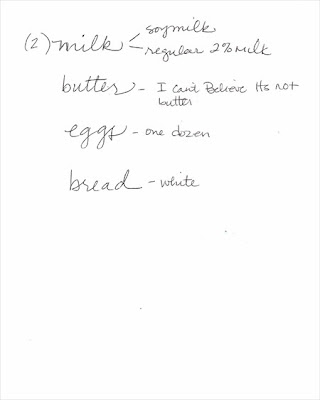 soymilk
(2) milk < regular 2% Milk
butter - I Can't Believe Its not
butter
eggs - one dozen
bread - white